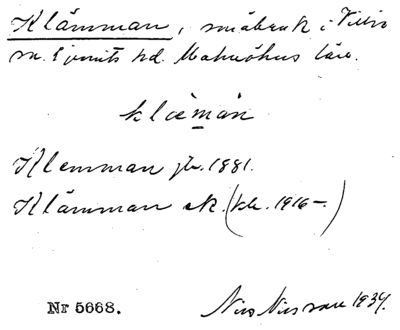 Klämman, småbruk i
sn. Ljunits hd. Malmöhus län.
klämän
Klemman jb. 1881.
Klämman ek. (kbr. 1916-.)
Nr 5668.
Nils Nilsson 1934.